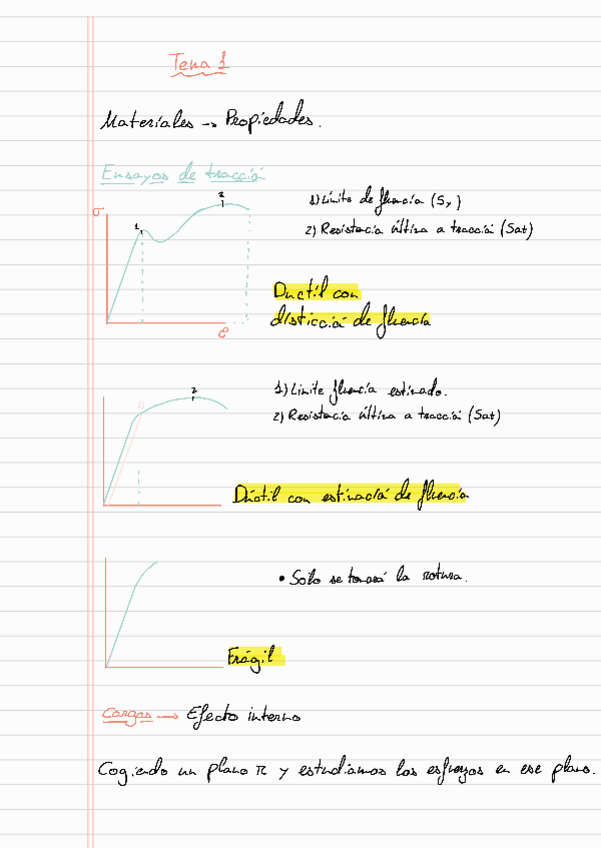 Tema 1
Materiales → Propiedades.
Ensayos de tracció
σ
1
2
e
1) Límite de fluencia (Sy)
2) Resistecia última a tracció (Sat)
Ductil con
disticció de fluencia
2
1) Limite fluencia estimado.
2) Resistecia última a tracció (Sat)
Dúctil con estimació de fluencia
• Sólo se tomará la rotura.
Frágil
Cargas → Efecto interno
Cogiendo un plano π y estudiamos los esfuerzos en ese plano.